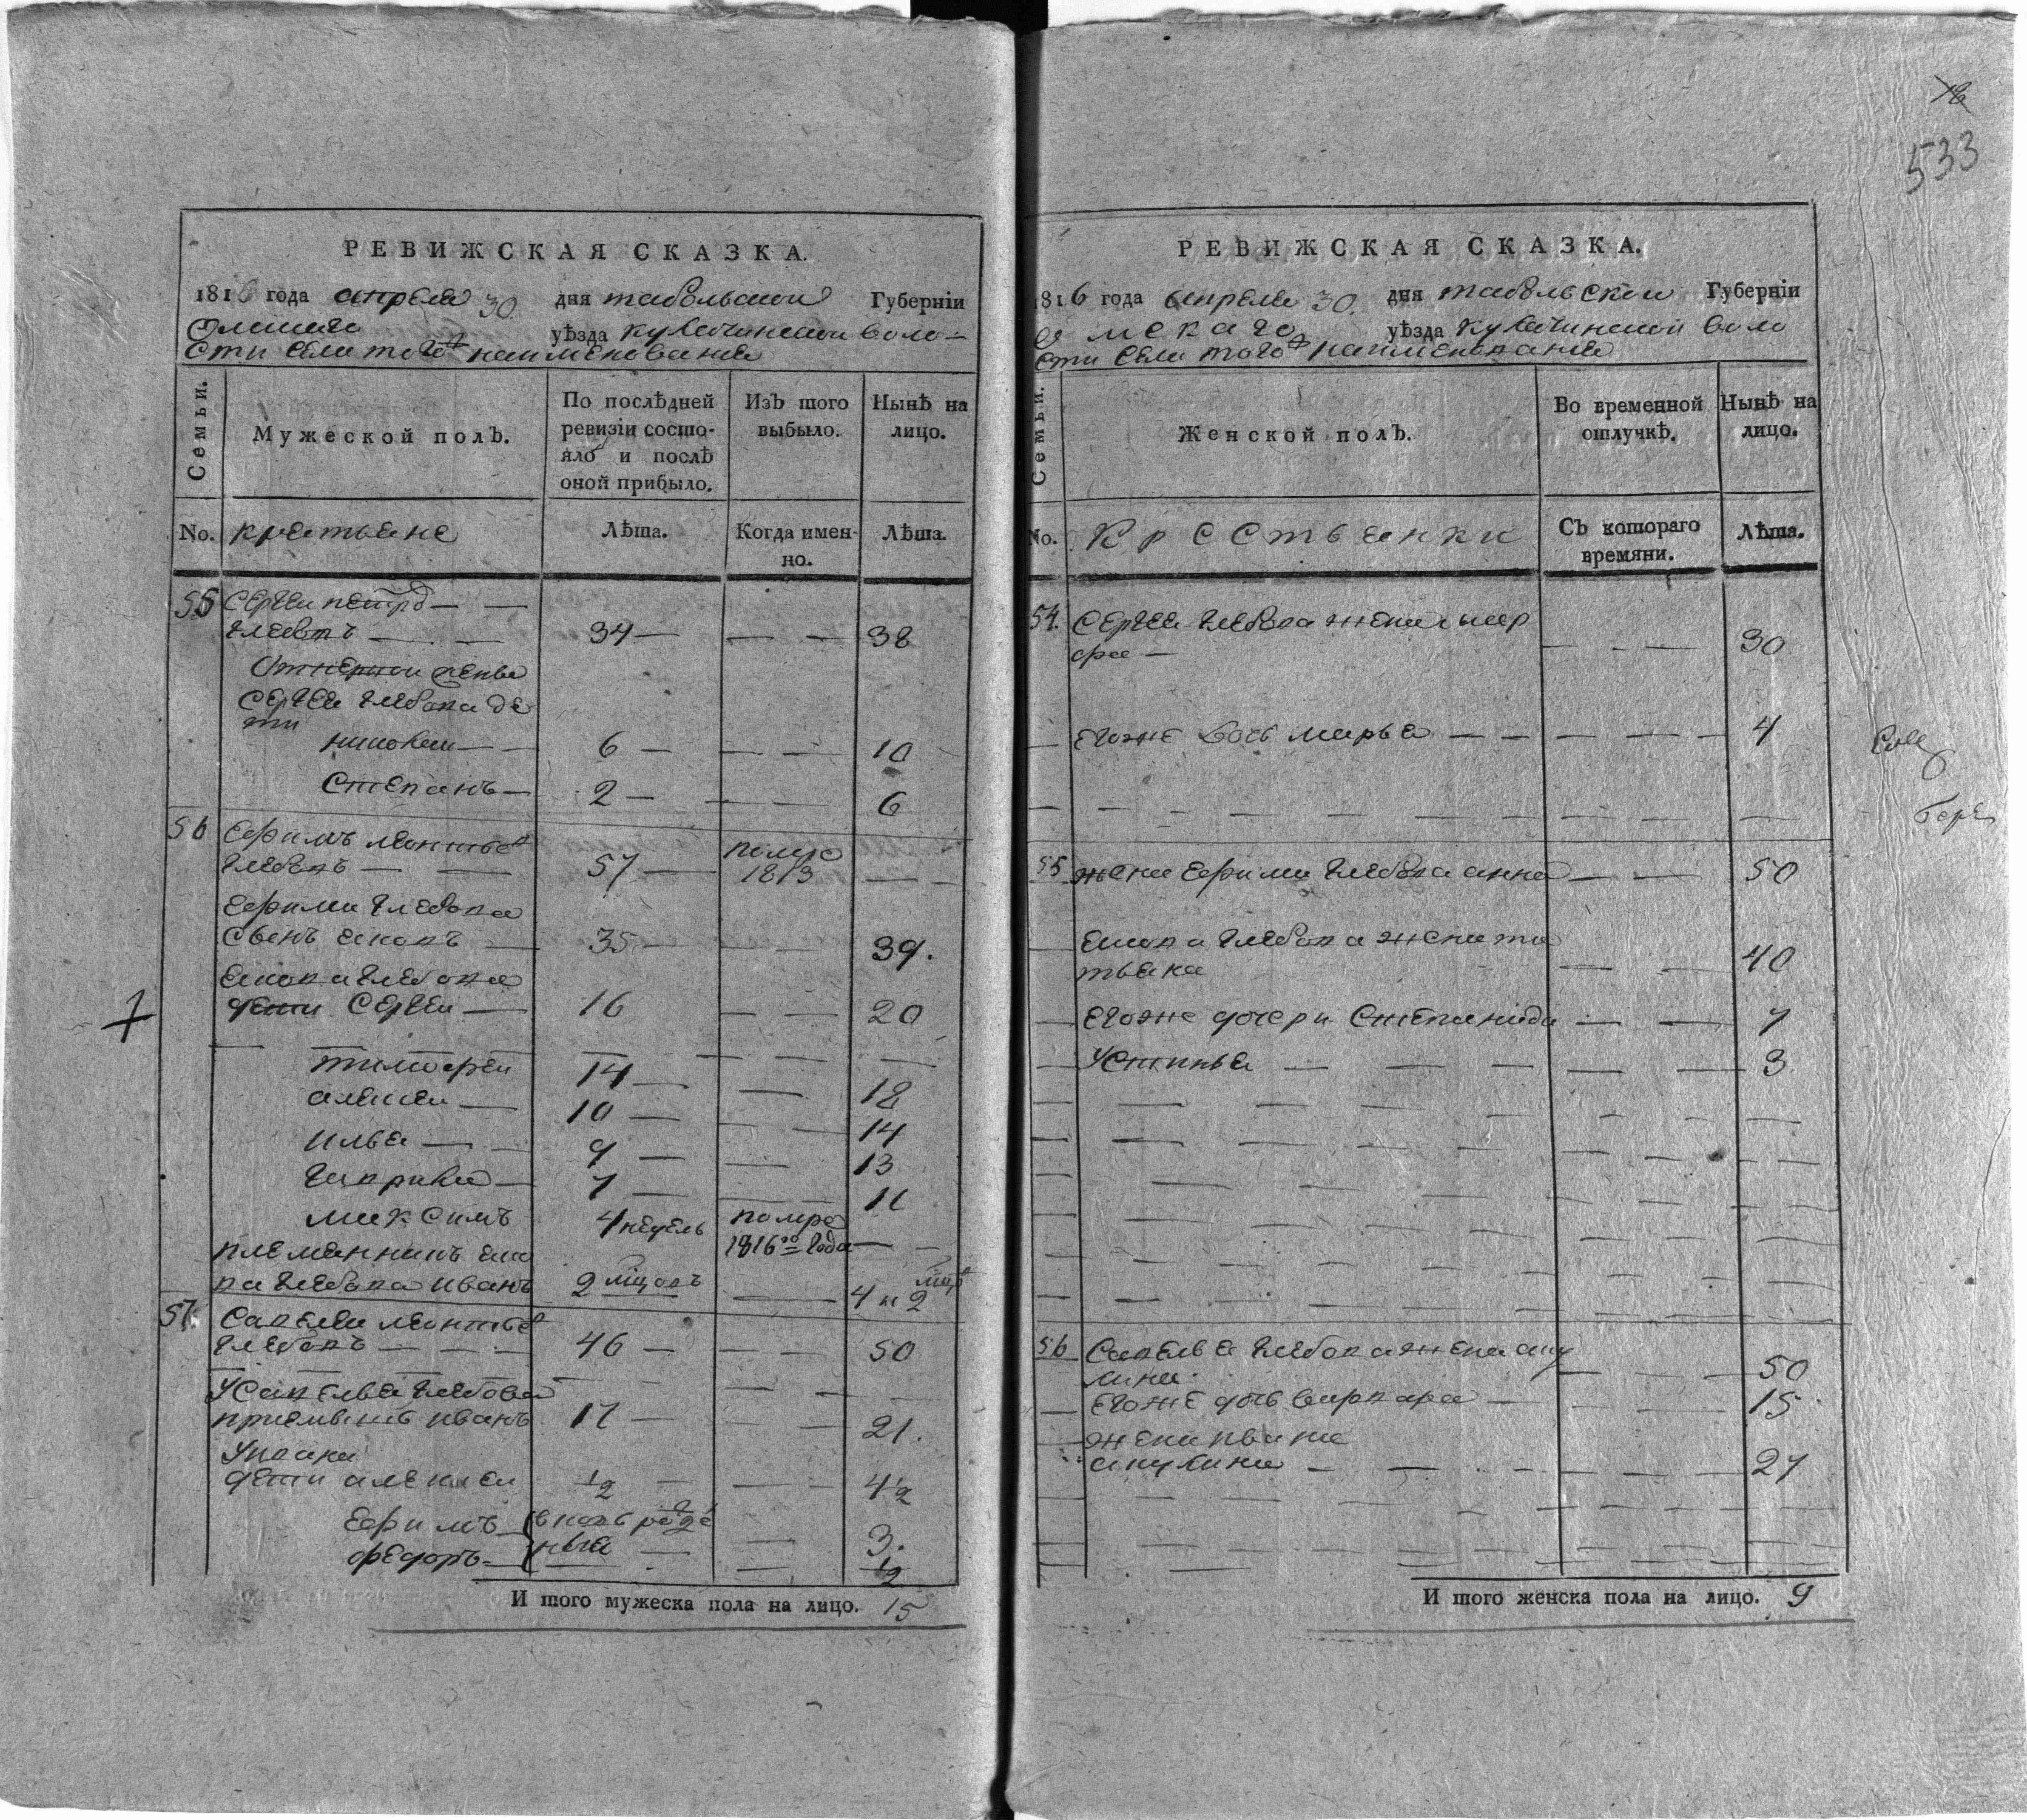 533
РЕВИЖСКАЯ СКАЗКА.
1816 года апреля 30. дня табольской Губернiи
Омскаго уѣзда кулачинской воло-
сти села того ж наименования
Семьи.
Мужеской полъ.
По послѣдней
ревизiи состо-
яло и послѣ
оной прибыло.
Изъ того
выбыло.
Нынѣ на
лицо.
No. крестьяне
Лѣта.
Когда имен-
но.
Лѣта.
55 Сергеи петров
Глебовъ — — 34 — — — 38
Сергея Глебова де
ти
николаи — 6 — — — 10
Степанъ — 2 — — — 6
56 Ефимъ леонтьев
Глебовъ — — 57 — помре 1813 — —
Ефима Глебова
Сынъ яковъ — 35 — — — 39.
якова Глебова
дети Сергеи — 16 — — 20
тимофеи 14 — — 18
алексеи — 10 — — — 14
илья — 9 — — 13
Гаврила — 7 — — — 11
максимъ 4 недель помре
1816го года — —
племянникъ яко
ва Глебова иванъ 2 мцовъ — 4 и 2 мцов
57. Савелеи леонтьев
Глебовъ — — — 46 — — — 50
У Савелья Глебова
приемышь иванъ 17 — — — 21.
У ивана
дети алексеи 1/2 — — — 4 1/2
Ефимъ — вновь рожде — 3.
федоръ — ные — — 1/2
И того мужеска пола на лицо. 15
РЕВИЖСКАЯ СКАЗКА.
1816 года апреля 30. дня табольской Губернiи
Омскаго уѣзда кулачинской воло
сти села того ж наименования
Семьи.
Женской полъ.
Во временной
отлучкѣ.
Нынѣ на
лицо.
No. Крестьянки
Съ котораго
времяни.
Лѣта.
54. Сергея Глебова жена мар
фа — — — — 30
егоже дочь марья — — — — — 4
55 жена Ефима Глебова анна — — 50
якова Глебова жена та
тьяна — — 40
егоже дочери Степанида — — 7
Устинья — — — — — 3
56 Савелья Глебова жена аку
лина — — — 50
егоже дочь варвара — — — 15
жена ивана
акулина — — — — — 27
И того женска пола на лицо. 9